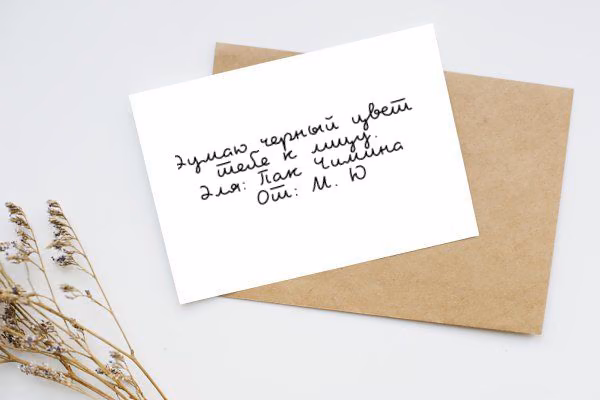 Думаю черный цвет
тебе к лицу.
Для: Пак Чимина
От: М. Ю